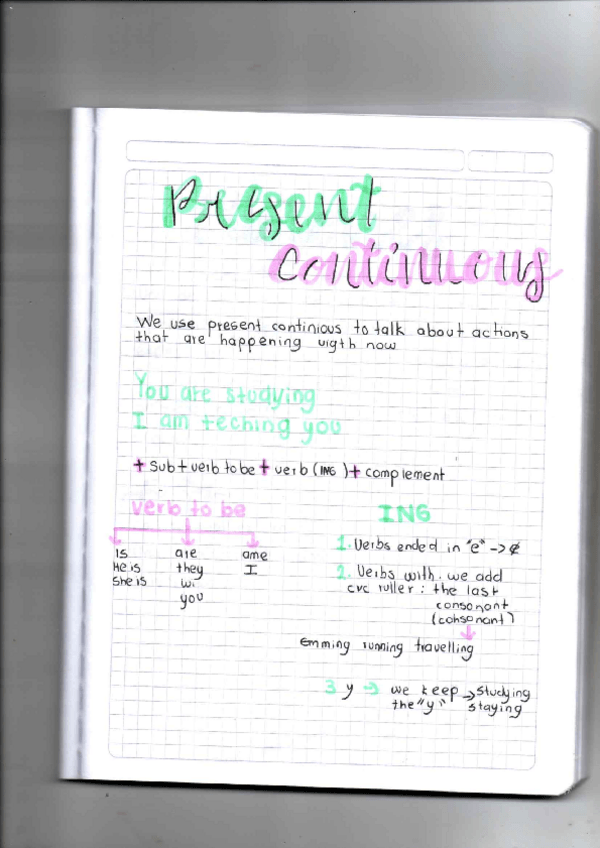 Present
continuous
We use present continious to talk about actions
that are happening vigth now
You are studying
I am teching you
+ Sub + verb to be + verb (ING) + complement
verb to be
is are ame
He is they I
She is wi
you
ING
1. Verbs ended in "e" -> e
2. Verbs with. we add
cvc ruller: the last
consonant
(consonant)
emming running travelling
3 y → we keep → studying
the "y" staying